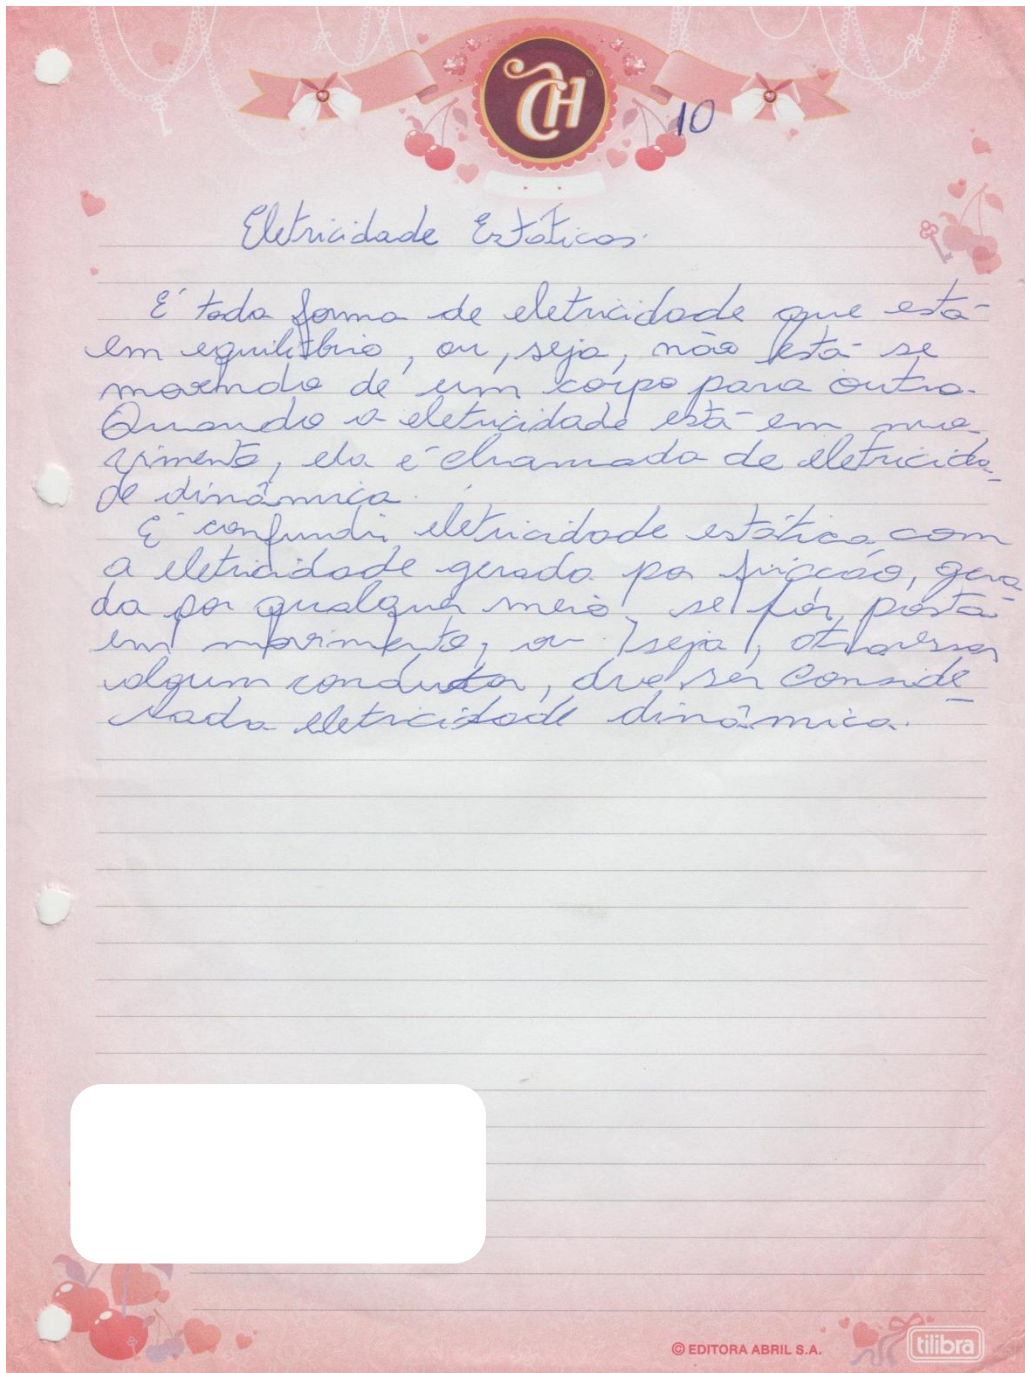 CH
10
Eletricidade Estáticas.
É toda forma de eletricidade que está
em equilitbrio, ou, seja, não está se
movendo de um corpo para outro.
Quando a eletricidade está em mo
vimento, ela é chamada de eletricida_
de dinâmica.
É confundi eletricidade estática com
a eletricidade gerada por fricção, gera
da por qualquer meio se fór posta
em movimento, ou seja, atravessa
algum condutor, deve ser conside_
rada eletricidade dinâmica.
© EDITORA ABRIL S.A.
tilibra